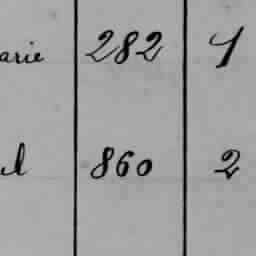 arie 282 1
l 860 2